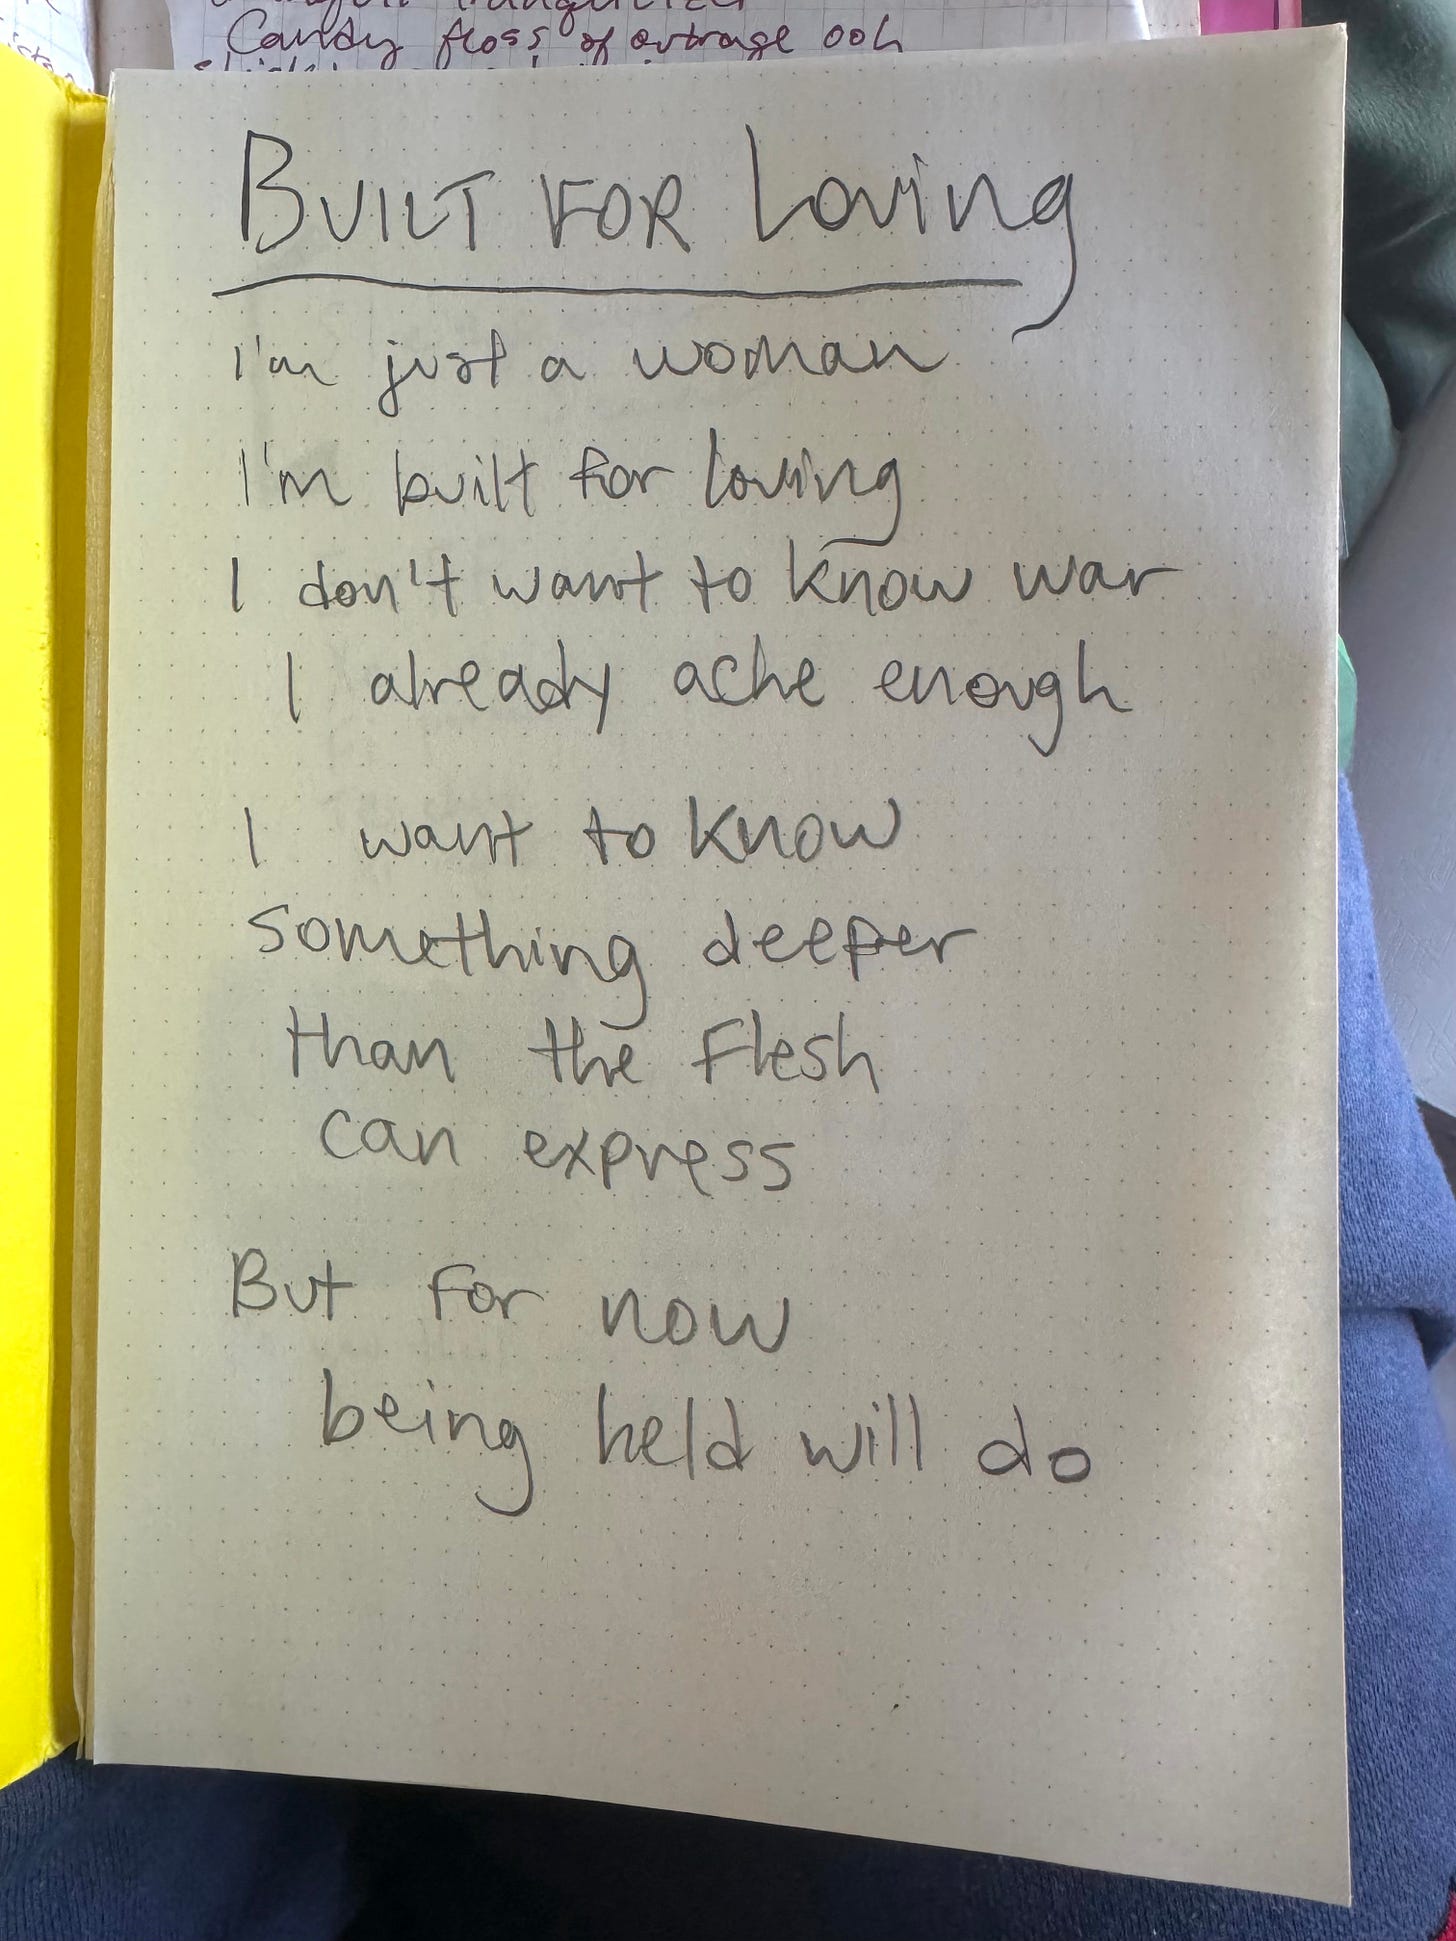 Candy floss of outrage ooh
BUILT FOR Loving
I'm just a woman
I'm built for loving
I don't want to know war
I already ache enough
I want to know
something deeper
than the flesh
can express
But for now
being held will do